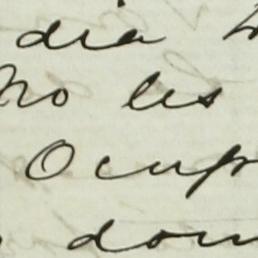 dia
No les
Ocup
dom